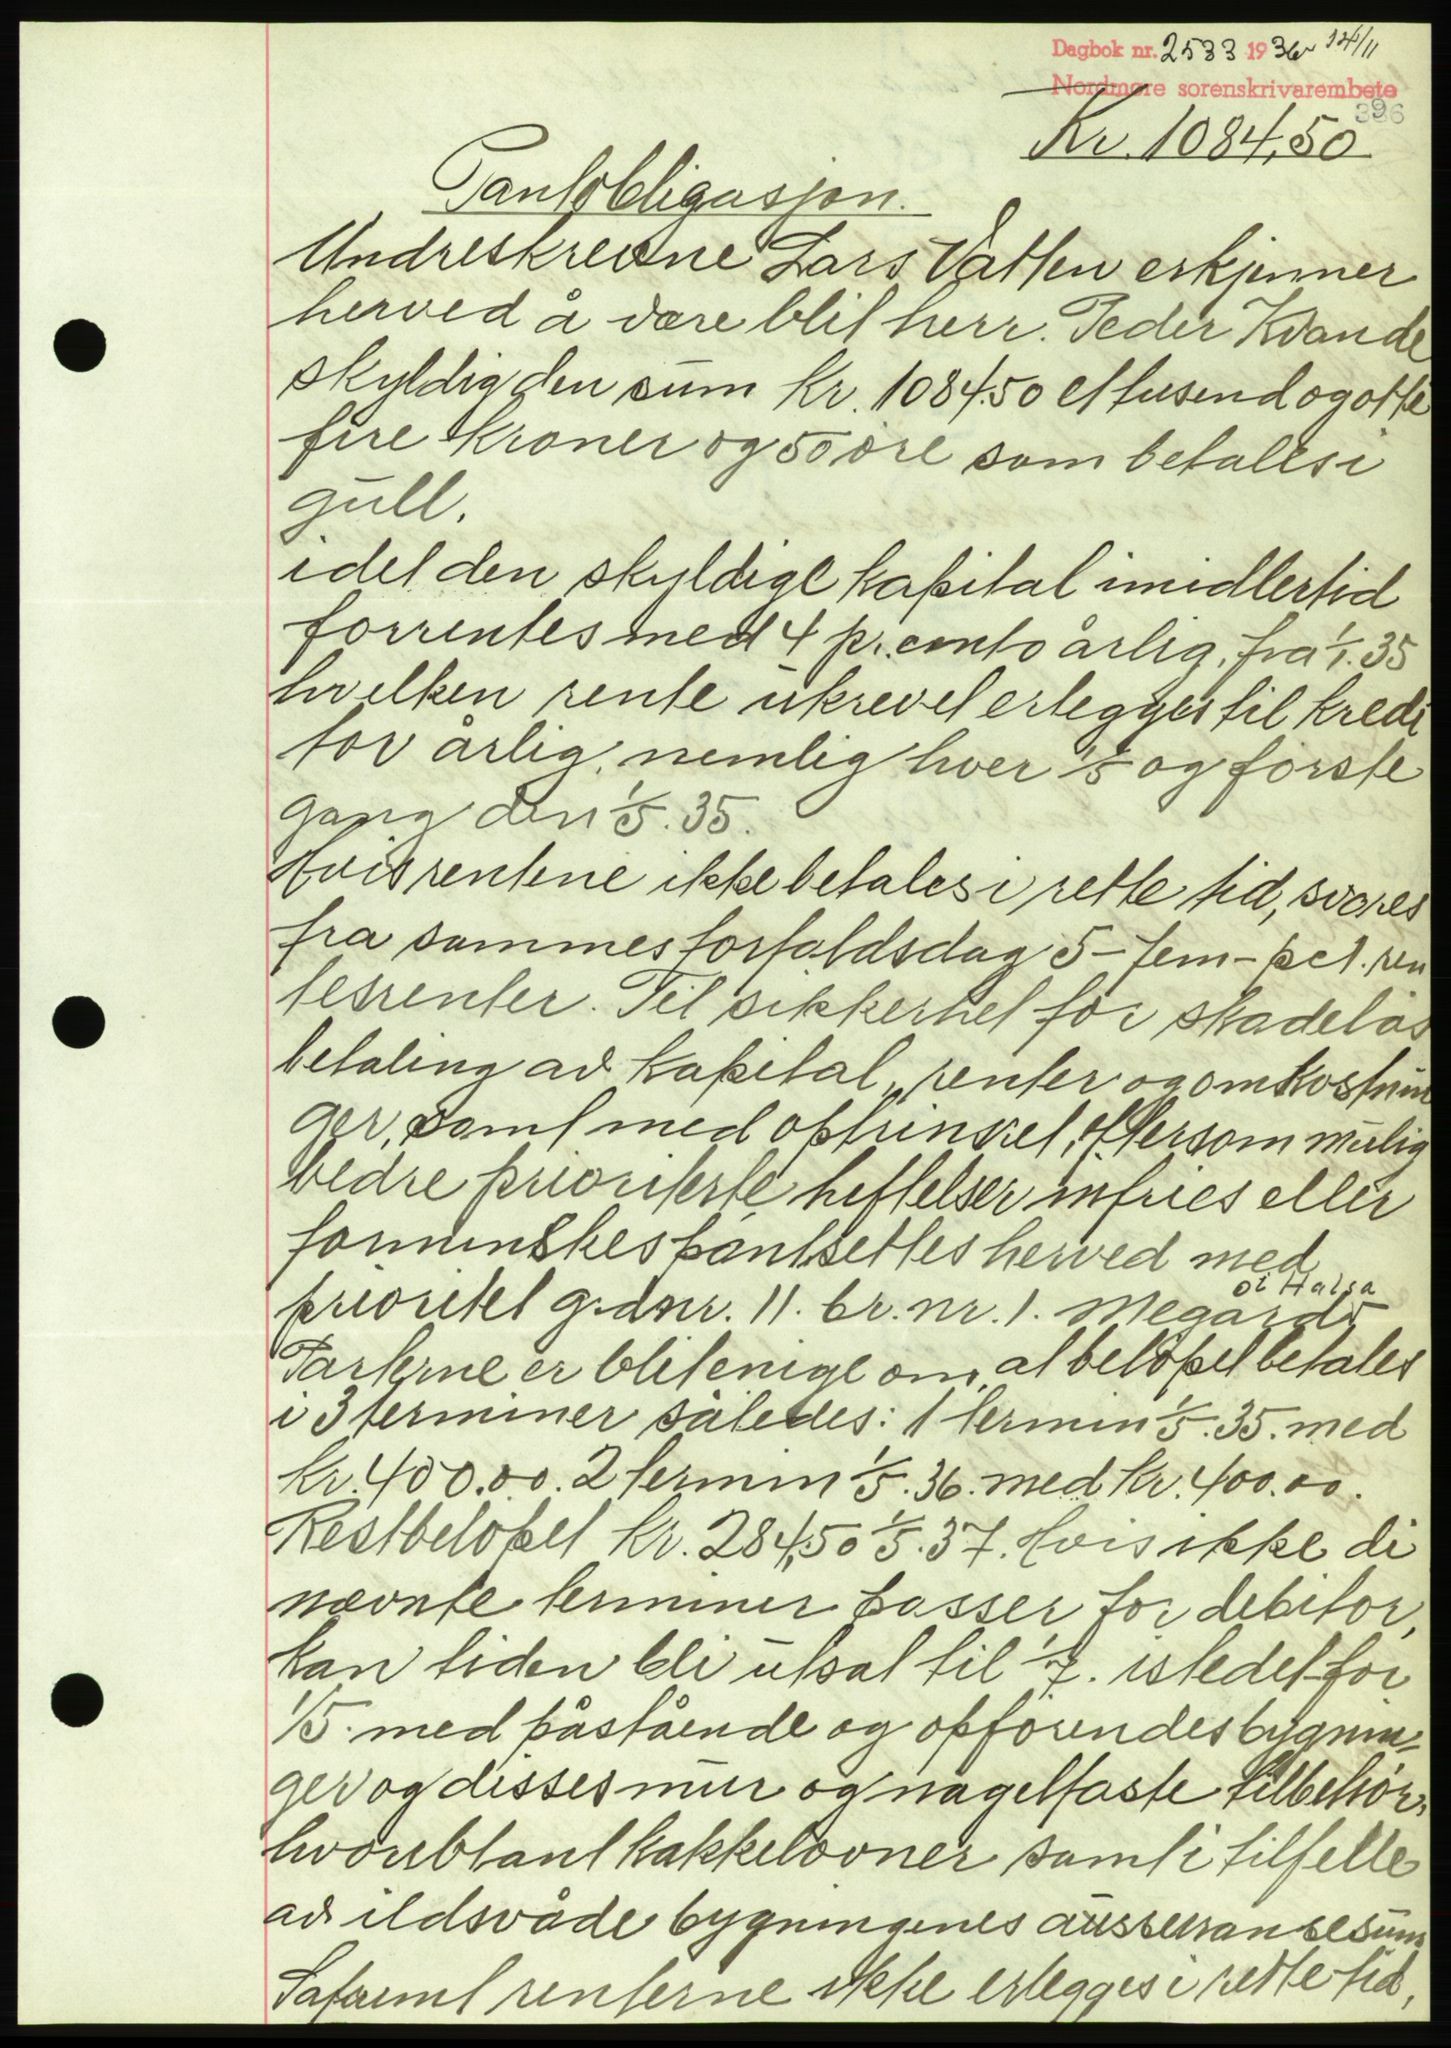 Dagbok nr. 2533 1936 14/11
Nordmøre sorenskrivarembete
396
Kr. 1084,50
Pantobligasjon.
Undreskrevne Lars Våtten erkjenner
herved å være blit herr. Peder Kvande
skyldig den sum Kr. 1084.50 ettusendogotti
fire kroner og 50 øre som betales i
gull.
idet den skyldige kapital imidlertid
forrentes med 4 pr. cento årlig, fra 1/1.35
hvelken rente ukrevet erlegges til kredi
tor årlig, nemlig hver 1/5 og første
gang den 1/5.35.
Hvis rentene ikke betales i rette tid, svares
fra sammes forfaldsdag 5-fem-pct. ren
tesrenter. Til sikkerhet for skadeløs
betaling av kapital, renter og omkostnin
ger, samt med optrinsret, eftersom mulig
bedre prioriterte heftelser infries eller
forminskes pantsettes herved med
prioritet g.dnr. 11. br. nr. 1. Megård
i Halsa
Parterne er blit enige om, at beløpet betales
i 3 terminer således: 1 termin 1/5.35. med
kr. 400.00. 2 termin 1/5.36. med kr. 400.00.
Restbeløpet kr. 284,50 1/5.37. Hvis ikke di
nævnte terminer passer for debitor,
kan tiden bli utsat til 1/7. istedet for
1/5. med påstående og opførendes bygnin-
ger og disses mur og nagelfaste tilbehør,
hvoriblant kakkelovner samt i tilfelle
av ildsvåde bygningenes assuransesum
Såfremt renterne ikke erlegges i rette tid,